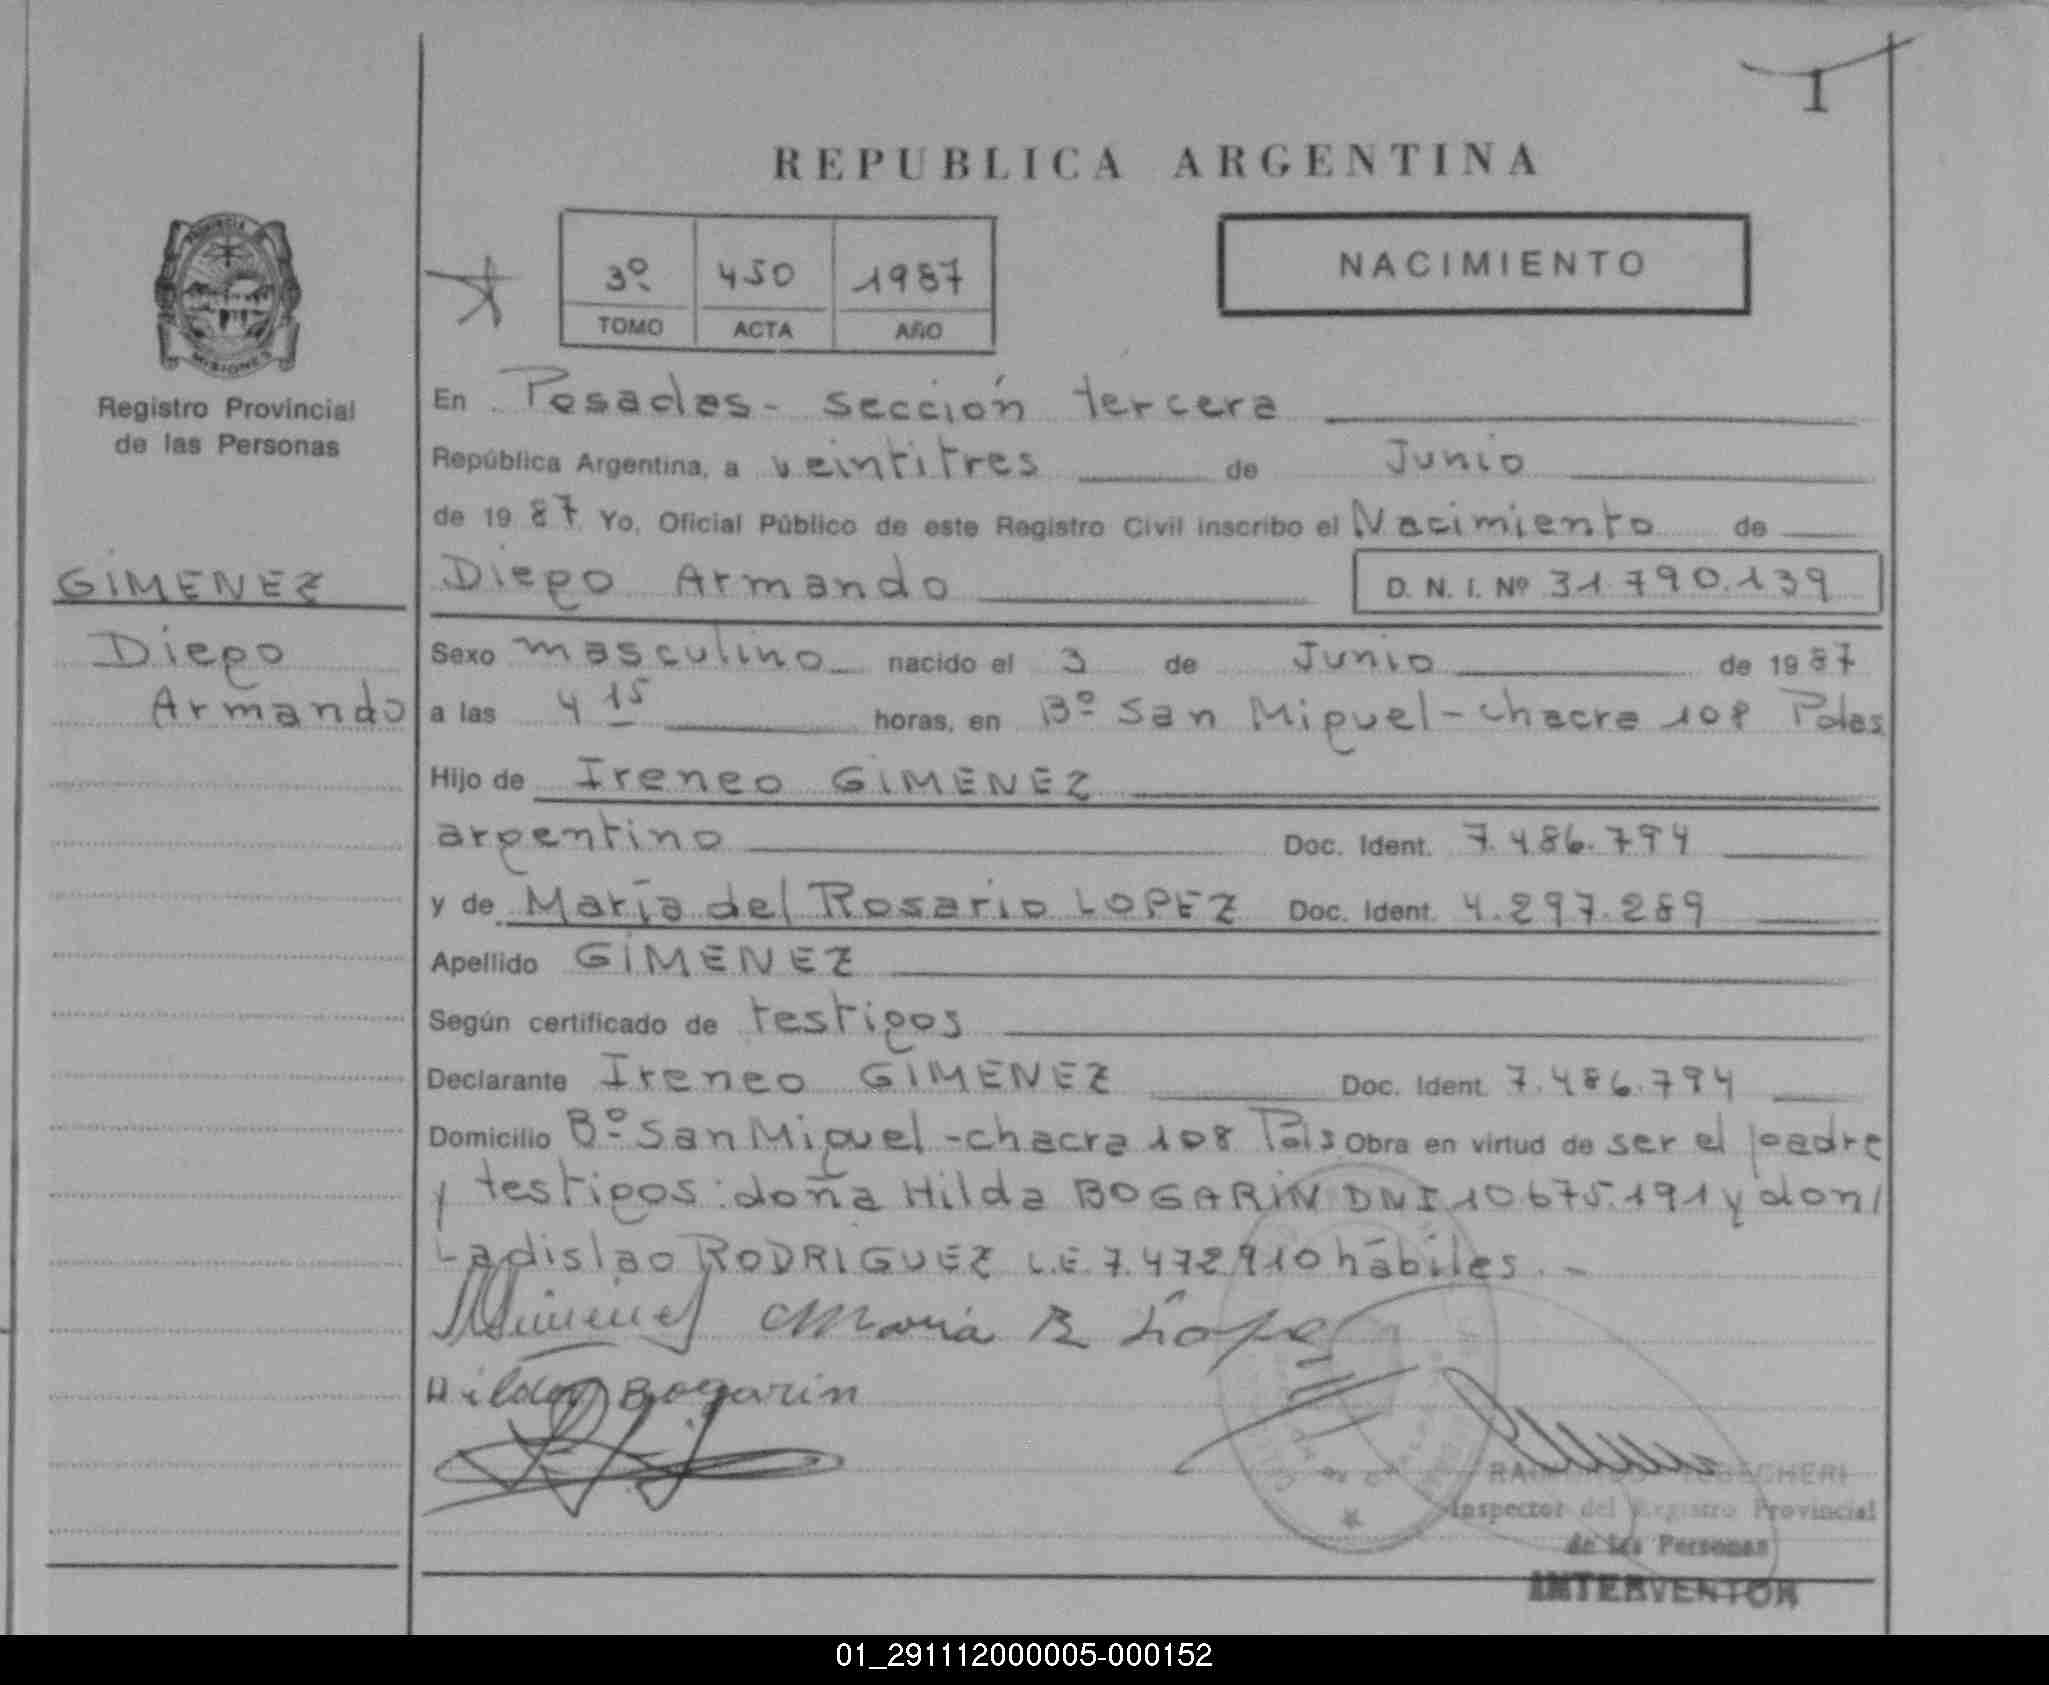 I
REPUBLICA ARGENTINA
PROVINCIA
MISIONES
3º 450 1987
TOMO ACTA AÑO
NACIMIENTO
Registro Provincial
de las Personas
En Posadas- sección tercera
República Argentina, a veintitres de Junio
de 1987. Yo, Oficial Público de este Registro Civil inscribo el Nacimiento de
GIMENEZ
Diego Armando D. N. I. Nº 31.790.139
Diego
Armando
Sexo masculino nacido el 3 de Junio de 1987
a las 4 15 horas, en Bº San Miguel-chacra 108 Pdas
Hijo de Ireneo GIMENEZ
argentino Doc. Ident. 7.486.794
y de María del Rosario LOPEZ Doc. Ident. 4.297.289
Apellido GIMENEZ
Según certificado de testigos
Declarante Ireneo GIMENEZ Doc. Ident. 7.486.794
Domicilio Bº San Miguel-chacra 108 Obra en virtud de ser el padre
y testigos: doña Hilda BOGARIN DNI 10675.191 y don/
Ladislao RODRIGUEZ L.E. 7.472910 hábiles.-
Maria R Lope
Hilda Bogarin
Inspector del Registro Provincial
de las Personas
INTERVENTOR
01_291112000005-000152